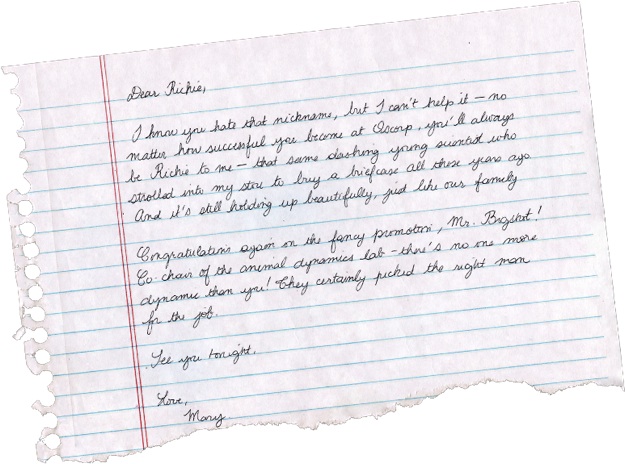 Dear Richie,
I know you hate that nickname, but I can't help it – no
matter how successful you become at Oscorp, you'll always
be Richie to me – that same dashing young scientist who
strolled into my store to buy a briefcase all those years ago.
And it's still holding up beautifully, just like our family.
Congratulations again on the fancy promotion, Mr. Bigshot!
Co-chair of the animal dynamics lab – there's no one more
dynamic than you! They certainly picked the right man
for the job.
See you tonight.
Love,
Mary